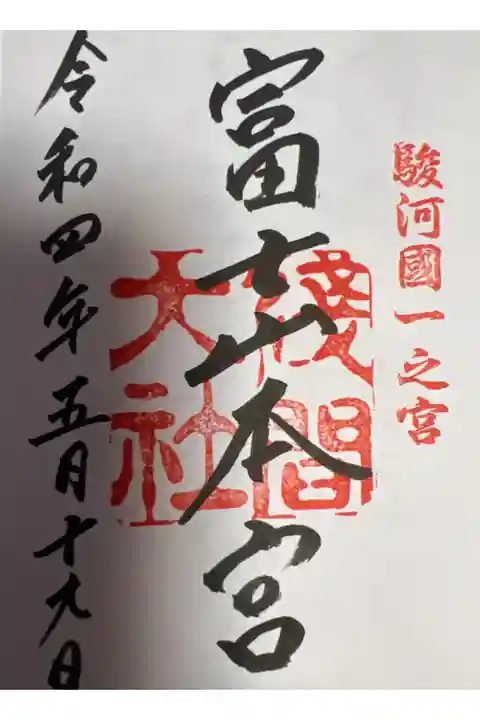 駿河國一之宮
富士山本宮
淺間
大社
令和四年五月十九日